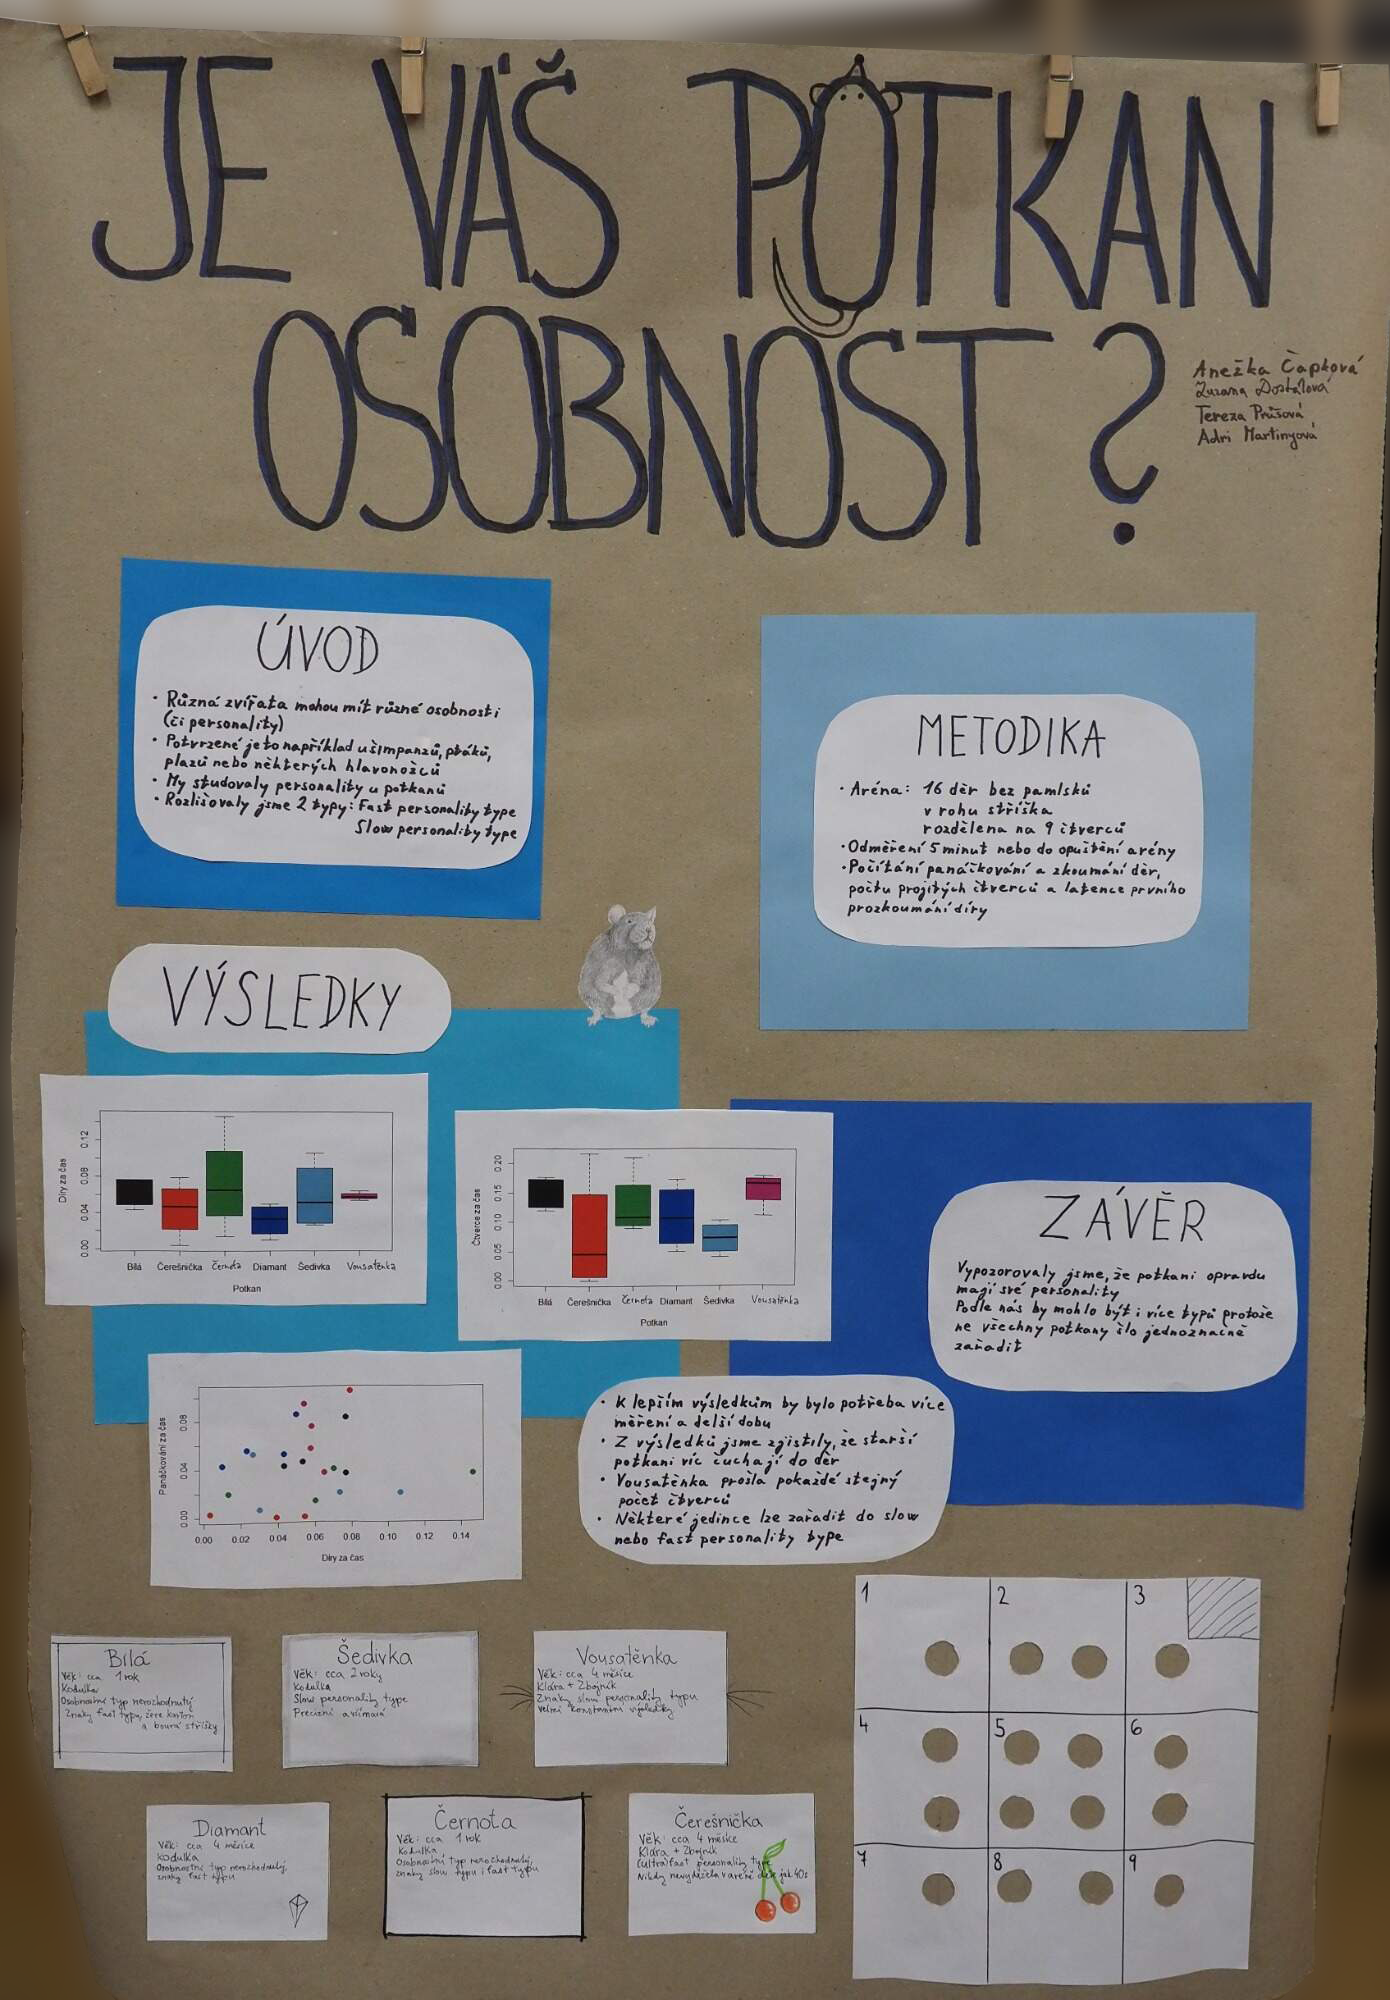 JE VÁŠ POTKAN
OSOBNOST?
Anežka Čapková
Zuzana Dostálová
Tereza Průšová
Adri Martinyová
ÚVOD
• Různá zvířata mohou mít různé osobnosti
(či personality)
• Potvrzené je to například u šimpanzů, ptáků,
plazů nebo některých hlavonožců
• My studovaly personality u potkanů
• Rozlišovaly jsme 2 typy: Fast personality type
Slow personality type
METODIKA
• Aréna: 16 děr bez pamlsků
v rohu stříška
rozdělena na 9 čtverců
• Odměření 5 minut nebo do opuštění arény
• Počítání panáčkování a zkoumání děr,
počtu projitých čtverců a latence prvního
prozkoumání díry
VÝSLEDKY
Díry za čas
0.12
0.08
0.04
0.00
Bílá Čerešnička Černota Diamant Šedivka Vousatěnka
Potkan
Čtverce za čas
0.20
0.15
0.10
0.05
0.00
Bílá Čerešnička Černota Diamant Šedivka Vousatěnka
Potkan
ZÁVĚR
Vypozorovaly jsme, že potkani opravdu
mají své personality
Podle nás by mohlo být i více typů protože
ne všechny potkany šlo jednoznačně
zařadit
Panáčkování za čas
0.08
0.04
0.00
0.00 0.02 0.04 0.06 0.08 0.10 0.12 0.14
Díry za čas
• K lepším výsledkům by bylo potřeba více
měření a delší dobu
• Z výsledků jsme zjistily, že starší
potkani víc čuchají do děr
• Vousatěnka prošla pokaždé stejný
počet čtverců
• Některé jedince lze zařadit do slow
nebo fast personality type
Bílá
Věk: cca 1 rok
Kodulka
Osobnostní typ nerozhodnutý
Znaky fast typu, žere karton
a bourá stříšky
Šedivka
Věk: cca 2 roky
Kodulka
Slow personality type
Precizní a všímavá
Vousatěnka
Věk: cca 4 měsíce
Klára + Zbojník
Znaky slow personality typu
Velmi konstantní výsledky
Diamant
Věk: cca 4 měsíce
Kodulka
Osobnostní typ nerozhodnutý,
znaky fast typu
Černota
Věk: cca 1 rok
Kodulka
Osobnostní typ nerozhodnutý,
znaky slow typu i fast typu
Čerešnička
Věk: cca 4 měsíce
Klára + Zbojník
(ultra)fast personality type
Nikdy nevydržela v aréně déle jak 40s
1 2 3
4 5 6
7 8 9